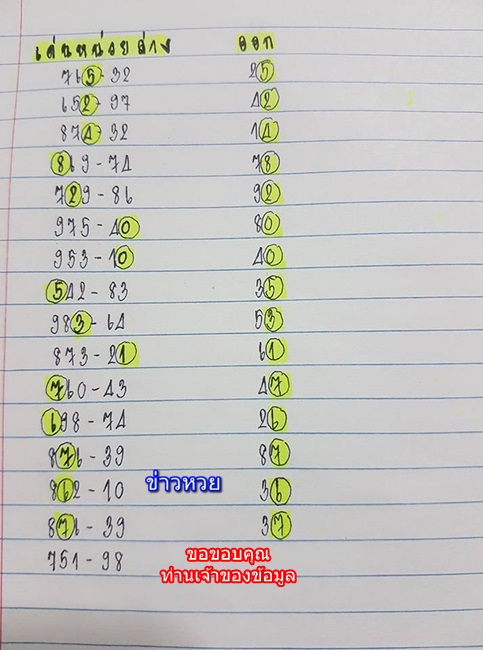 เด่นหน่วยล่าง ออก
765-32 25
652-97 42
874-32 14
869-74 78
729-86 92
975-40 80
953-10 40
542-83 35
983-64 53
873-21 61
760-43 47
698-74 26
876-39 87
862-10 36
ข่าวหวย
876-39 37
751-98
ขอขอบคุณ
ท่านเจ้าของข้อมูล